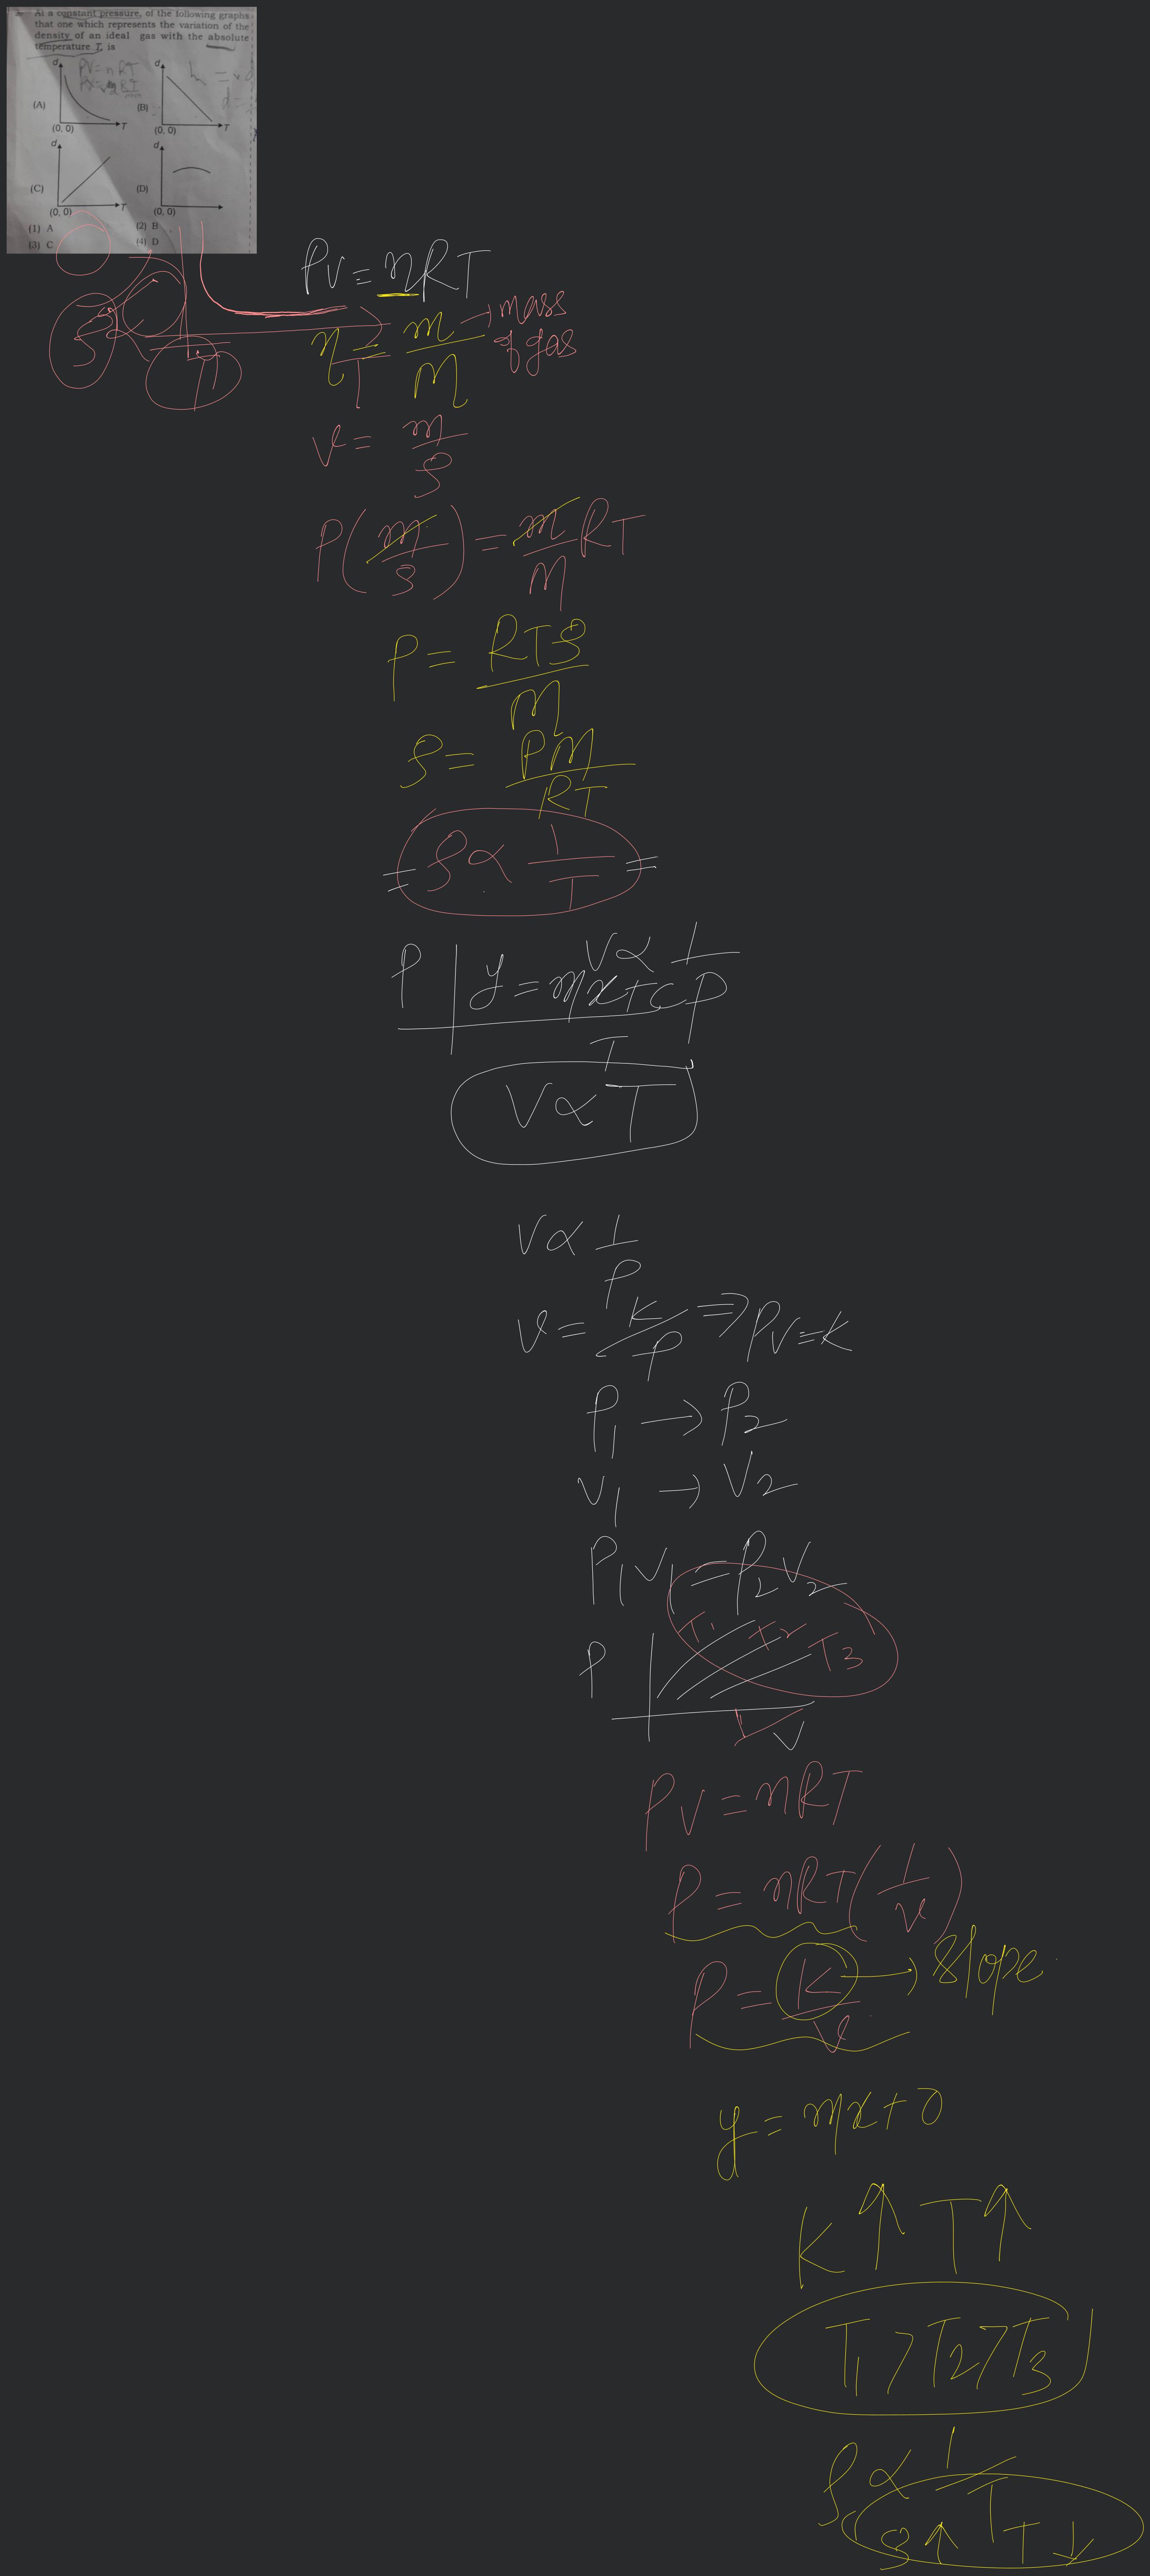 At a constant pressure, of the following graphs
that one which represents the variation of the
density of an ideal gas with the absolute
temperature T, is
d
PV = nRT
d
(A)
(B)
(0, 0)
T
(0, 0)
T
d
d
(C)
(D)
(0, 0)
T
(0, 0)
(1) A
(2) B
(3) C
(4) D
PV = nRT
n = m/M → mass of gas
v = m/ρ
P(m/ρ) = m/M RT
P = RTρ/M
ρ = PM/RT
= ρ ∝ 1/T =
V ∝ 1/P
P
y = mx + c
T
V ∝ T
V ∝ 1/P
v = K/P ⇒ PV = K
P1 → P2
V1 → V2
P1V1 = P2V2
T1 T2 T3
P
1/V
PV = nRT
P = nRT(1/v)
P = K/v → Slope
y = mx + 0
K↑ T↑
T1 > T2 > T3
ρ ∝ 1/T
ρ↑ T↓